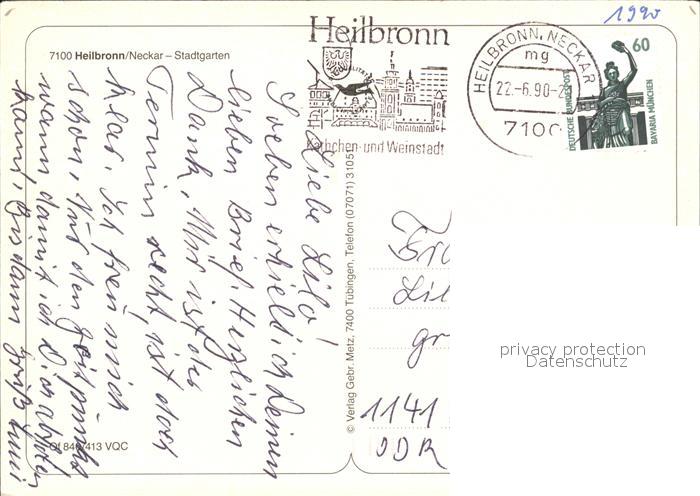 1990
7100 Heilbronn/Neckar – Stadtgarten
Heilbronn
Käthchen- und Weinstadt
HEILBRONN, NECKAR
mg
22.-6.90-2
7100
60
DEUTSCHE BUNDESPOST
BAVARIA MÜNCHEN
Liebe Lilo!
Soeben erhielt ich Deinen
lieben Brief. Herzlichen
Dank. Mir ist der
Termin recht, ist doch
klar. Ich freu mich
schon. Nur den Zeitpunkt
wann damit ich Dich abholen
kann. Bis dann grüßt
© Verlag Gebr. Metz, 7400 Tübingen, Telefon (07071) 3105
Of 840/413 VQC
Lil
gr
1141
DDR
privacy protection
Datenschutz